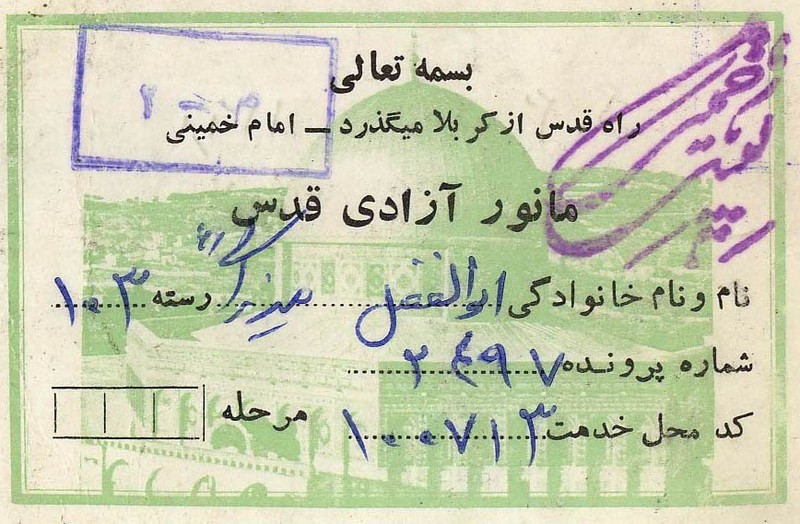 بسمه تعالی
راه قدس از کربلا میگذرد ــ امام خمینی
مانور آزادی قدس
نام و نام خانوادگی ابوالفضل رسته ۱۰۳
شماره پرونده ۲۴۹۷
کد محل خدمت ۱۰۰۷۱۳ مرحله